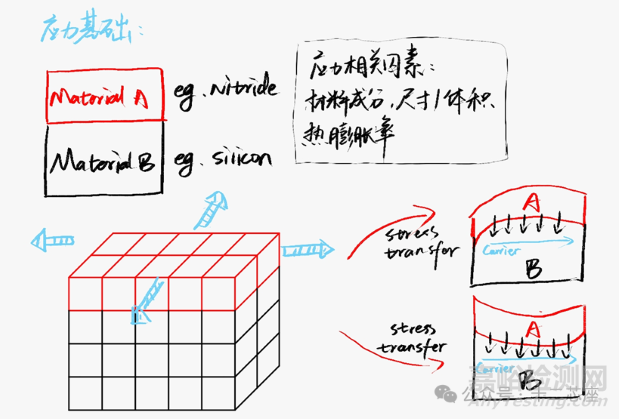 应力基础：
Material A eg. nitride
Material B eg. silicon
应力相关因素：
材料成分，尺寸/体积
热膨胀率
stress
transfer
A
carrier
B
stress
transfer
A
carrier
B
嘉峪检测网
AnyTesting.com
公众号：十二芯座